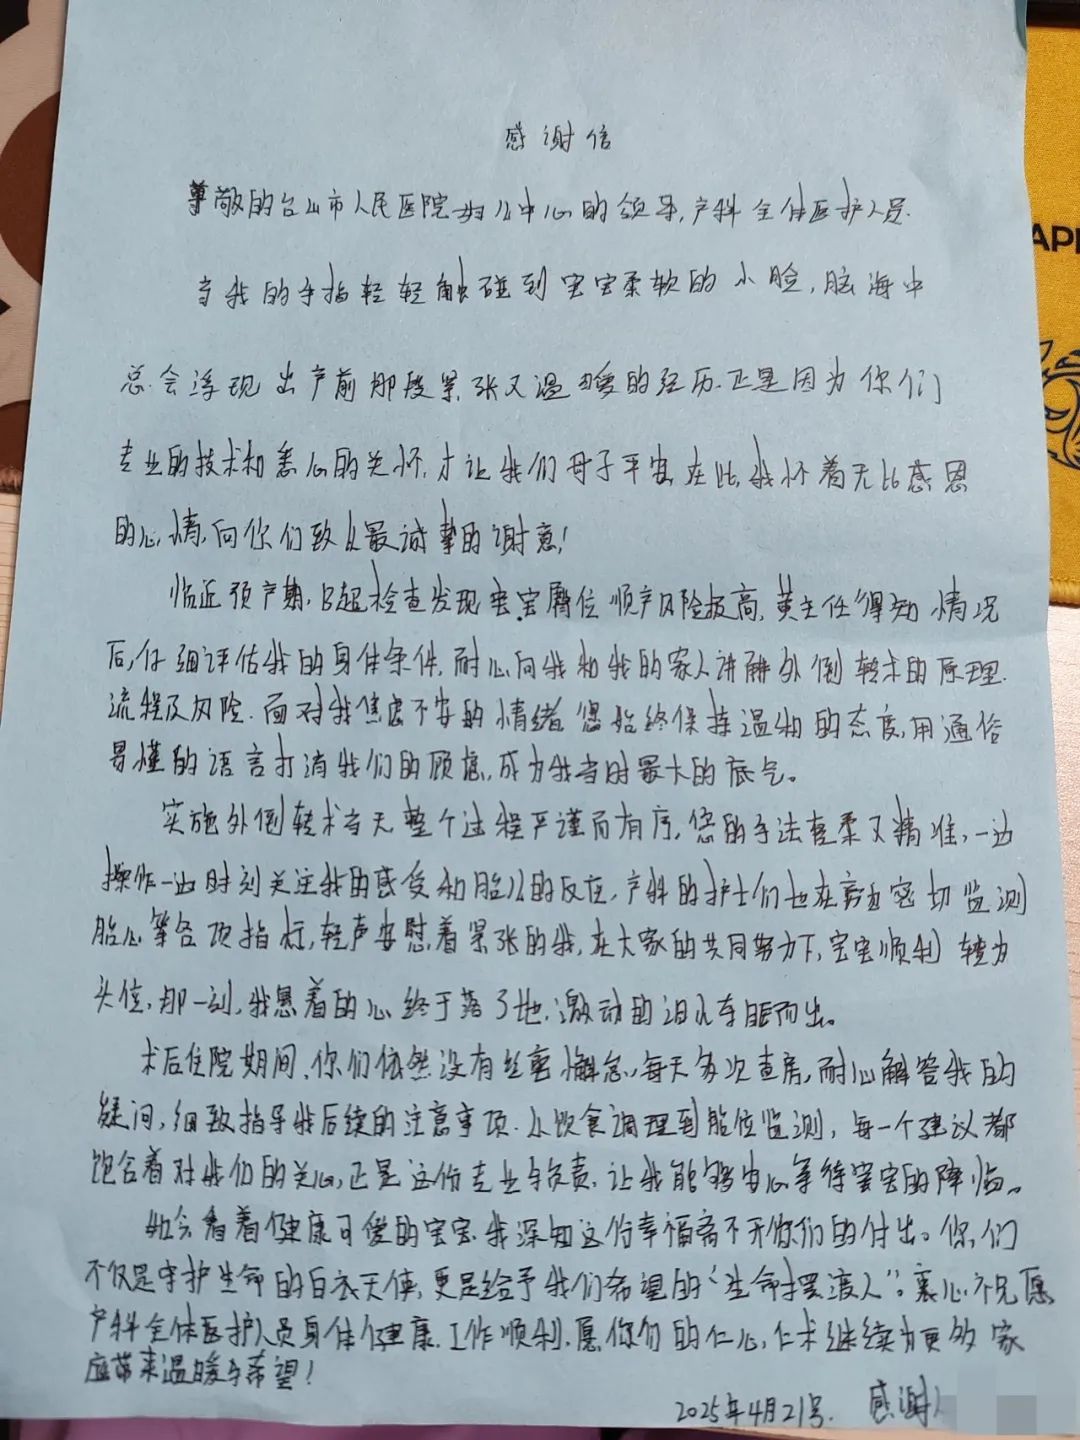 感谢信
尊敬的台山市人民医院妇儿中心的领导,产科全体医护人员.
当我的手指轻轻触碰到宝宝柔软的小脸,脑海中
总会浮现出产前那段紧张又温暖的经历.正是因为你们
专业的技术和悉心的关怀,才让我们母子平安,在此,我怀着无比感恩
的心情,向你们致以最诚挚的谢意!
临近预产期,B超检查发现宝宝臀位顺产风险极高,黄主任得知情况
后,仔细评估我的身体条件,耐心向我和我的家人讲解外倒转术的原理.
流程及风险.面对我焦虑不安的情绪您始终保持温和的态度,用通俗
易懂的语言打消我们的顾虑,成为我当时最大的底气。
实施外倒转术当天整个过程严谨而有序,您的手法轻柔又精准,一边
操作一边时刻关注我的感受和胎儿的反应,产科的护士们也在旁边密切监测
胎心等各项指标,轻声安慰着紧张的我,在大家的共同努力下,宝宝顺利转为
头位,那一刻,我悬着的心终于落了地,激动的泪水夺眶而出。
术后住院期间,你们依然没有丝毫懈怠,每天多次查房,耐心解答我的
疑问,细致指导我后续的注意事项.从饮食调理到胎位监测,每一个建议都
饱含着对我们的关心,正是这份专业与负责,让我能够安心等待宝宝的降临。
如今看着健康可爱的宝宝,我深知这份幸福离不开你们的付出。你们
不仅是守护生命的白衣天使,更是给予我们希望的“生命摆渡人”。衷心祝愿
产科全体医护人员身体健康.工作顺利,愿你们的仁心,仁术继续为更多家
庭带来温暖与希望!
2025年4月21号. 感谢人
AP